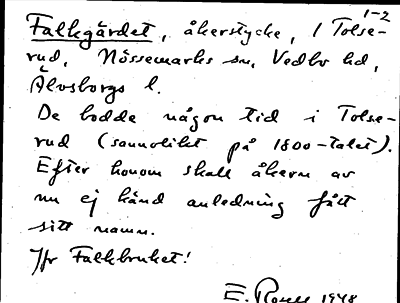 1-2
Falkgärdet, åkerstycke, i Tolse-
rud, Nössemarks sn, Vedbo hd,
Älvsborgs l.
De bodde någon tid i Tolse-
rud (sannolikt på 1800-talet).
Efter honom skall åkern av
nu ej känd anledning fått
sitt namn.
Jfr Falkbruket!
E. 1948